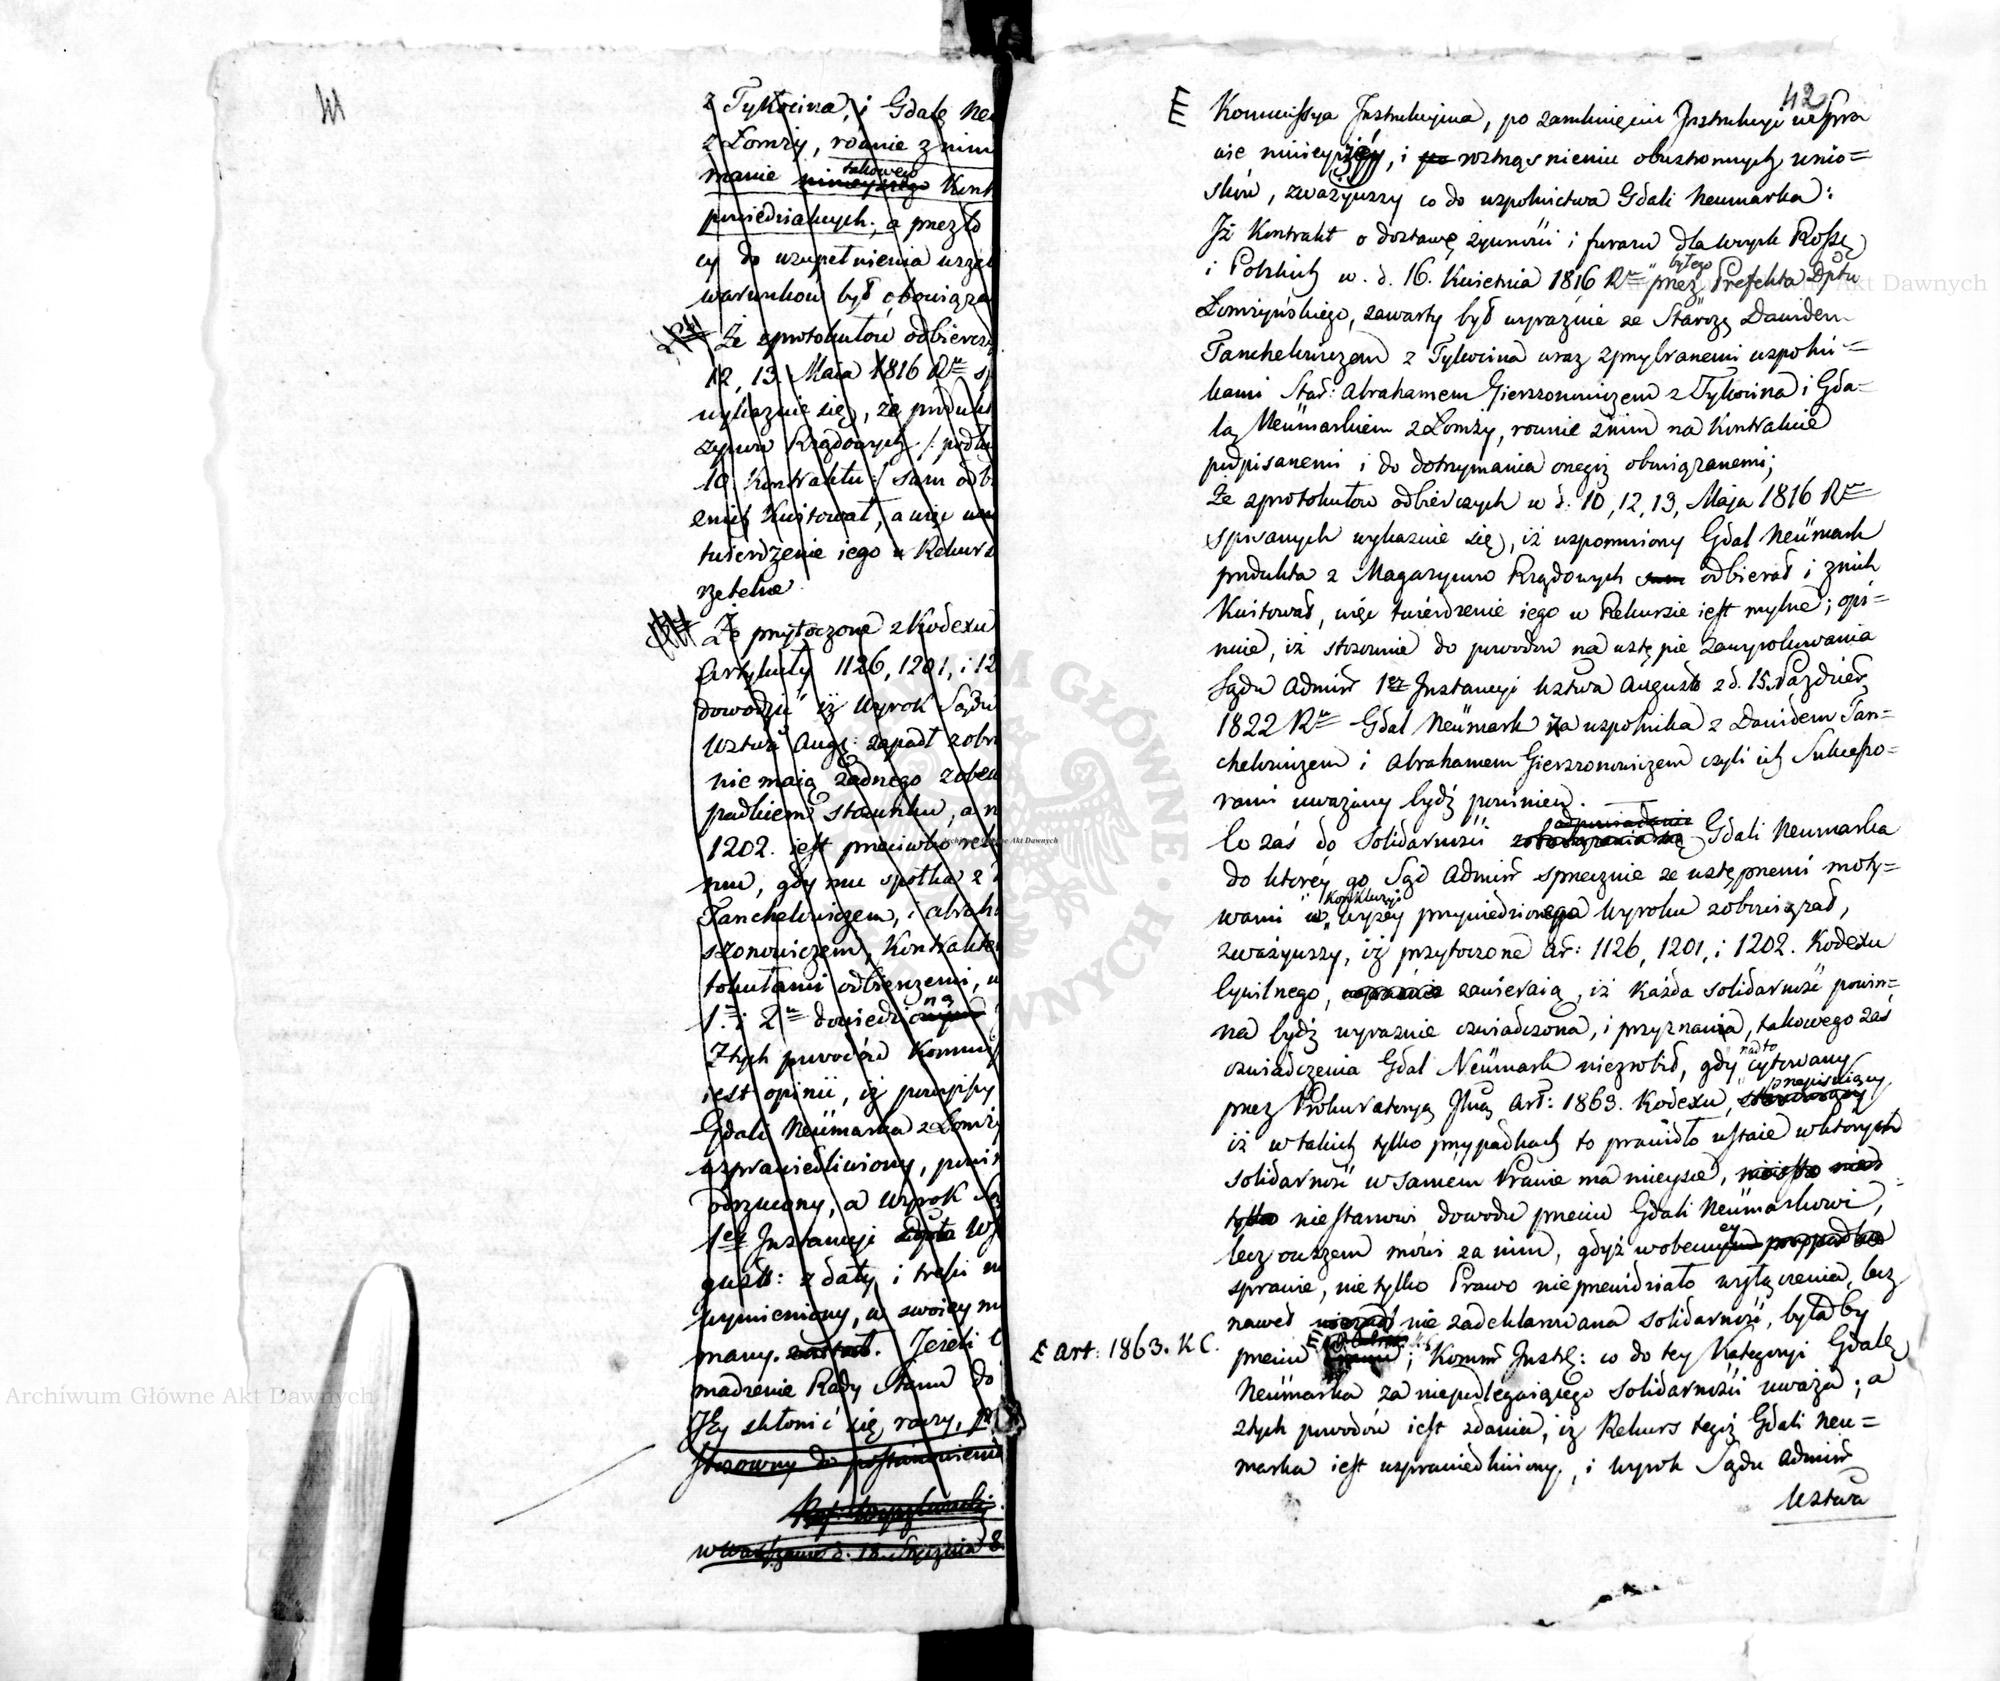 z Tykocina, i Gdalę Neu
z Łomży, równie z nim
manie takowego Kont
powiedzialnych; a przez to
cy do uzupełnienia wszel
warunków był obowiąza
Że z protokułów odbiercz
12, 13. Maia 1816 Rᵘ sp
wykazuie się, że produkt
zynów Rządowych /: podłu
10. Kontraktu :/ sam odb
emiż Kwitował, a więc
twierdzenie iego w Rekurs
rzetelne.
Że przytoczone z Kodexu
Artykuły 1126, 1201, i 12
dowodzić iż Wyrok Sądu
Wztwa Aug: zapadł
nie maią żadnego zobow
padkiem stosunku, a n
1202. iest przeciwko rek
mu, gdy mu spółka z
Tanchelowiczem, i Abrah
szonowiczem, Kontraktem
tokułami odbierczemi, w
1. i 2ᵐ dowiedzioną
Z tych powodów Kommis
iest opinii, iż
Gdali Neümarka z Łomży
usprawiedliwiony, powin
odrzucony, a Wyrok Są
1ey Instancyi W
gusto: z daty i treści w
wymieniony, w swoiey m
many. Jeżeli
madzenie Rady Stanu do
tey skłonić się raczy,
stosowny do postanowienia
w Warszawie d. 18. Stycznia 8
42
E Kommissya Instrukcyina, po zamknięciu Instrukcyi w Spra
wie ninieyszéy, i roztrząśnieniu obustronnych wnio=
sków, zważywszy co do wspolnictwa Gdali Neumarka:
Iż Kontrakt o dostawę żywności i furażu dla woysk Rossy:
i Polskich w. d. 16. Kwietnia 1816 Rᵘ przez byłego Prefekta Dptu
Łomżyńskiego, zawarty był wyraźnie ze Starozą: Dawidem
Tanchelowiczem z Tykocina wraz z przybranemi wspolni=
kami Star: Abrahamem Gierszonowiczem z Tykocina i Gda=
lą Neümarkiem z Łomży, rownie z nim na Kontrakcie
podpisanemi i do dotrzymania onegoż obowiązanemi;
Że z protokułow odbierczych w d. 10, 12, 13, Maja 1816 Rᵘ
spisanych wykazuie się, iż wspomniony Gdal Neümark
produkta z Magazynow Rządowych odbierał i z nich
Kwitował, więc twierdzenie iego w Rekursie iest mylne; opi=
niuie, iż stosownie do powodow na wstępie zawyrokowania
Sądu Admin 1ey Instancyi Wztwa August: z d. 15. Paździer:
1822 Rᵘ Gdal Neümark za wspolnika z Dawidem Tan=
chelowiczem i Abrahamem Gierszonowiczem czyli ich Sukcesso=
rami uważany bydź powinien.
Co zaś do Solidarności Gdali Neumarka
do którey go Sąd Admin sprzecznie ze wstępnemi moty=
wami i Konkluzyi wyżey przywiedzionego Wyroku zobowiązał,
zważywszy, iż przytoczone Ar: 1126, 1201, i 1202. Kodexu
Cywilnego, zawieraią, iż każda solidarność powin=
na bydź wyraźnie oświadczona, i przyznana, takowego zaś
oświadczenia Gdal Neümark niezrobił, gdy nadto cytowany
przez Prokuratoryą Jlną Art: 1863. Kodexu, przepisuiący,
iż w takich tylko przypadkach to prawidło ustaie w ktorych
solidarność w samem Prawie ma mieysce,
nie stanowi dowodu przeciw Gdali Neümarkowi,
lecz owszem mówi za nim, gdyż w obecney
sprawie, nie tylko Prawo nieprzewidziało wyłączenia, lecz
nawet nie zadeklarowana solidarność, byłaby
E Art. 1863. K C.
przeciw E; Komm Instr: co do tey Kategoryi Gdalę
Neümarka za niepodlegaiącego solidarności uważa; a
z tych powodów iest zdania, iż Rekurs tegoż Gdali Neu=
marka iest usprawiedliwiony, i wyrok Sądu Admin
Wztwa
Archiwum Główne Akt Dawnych